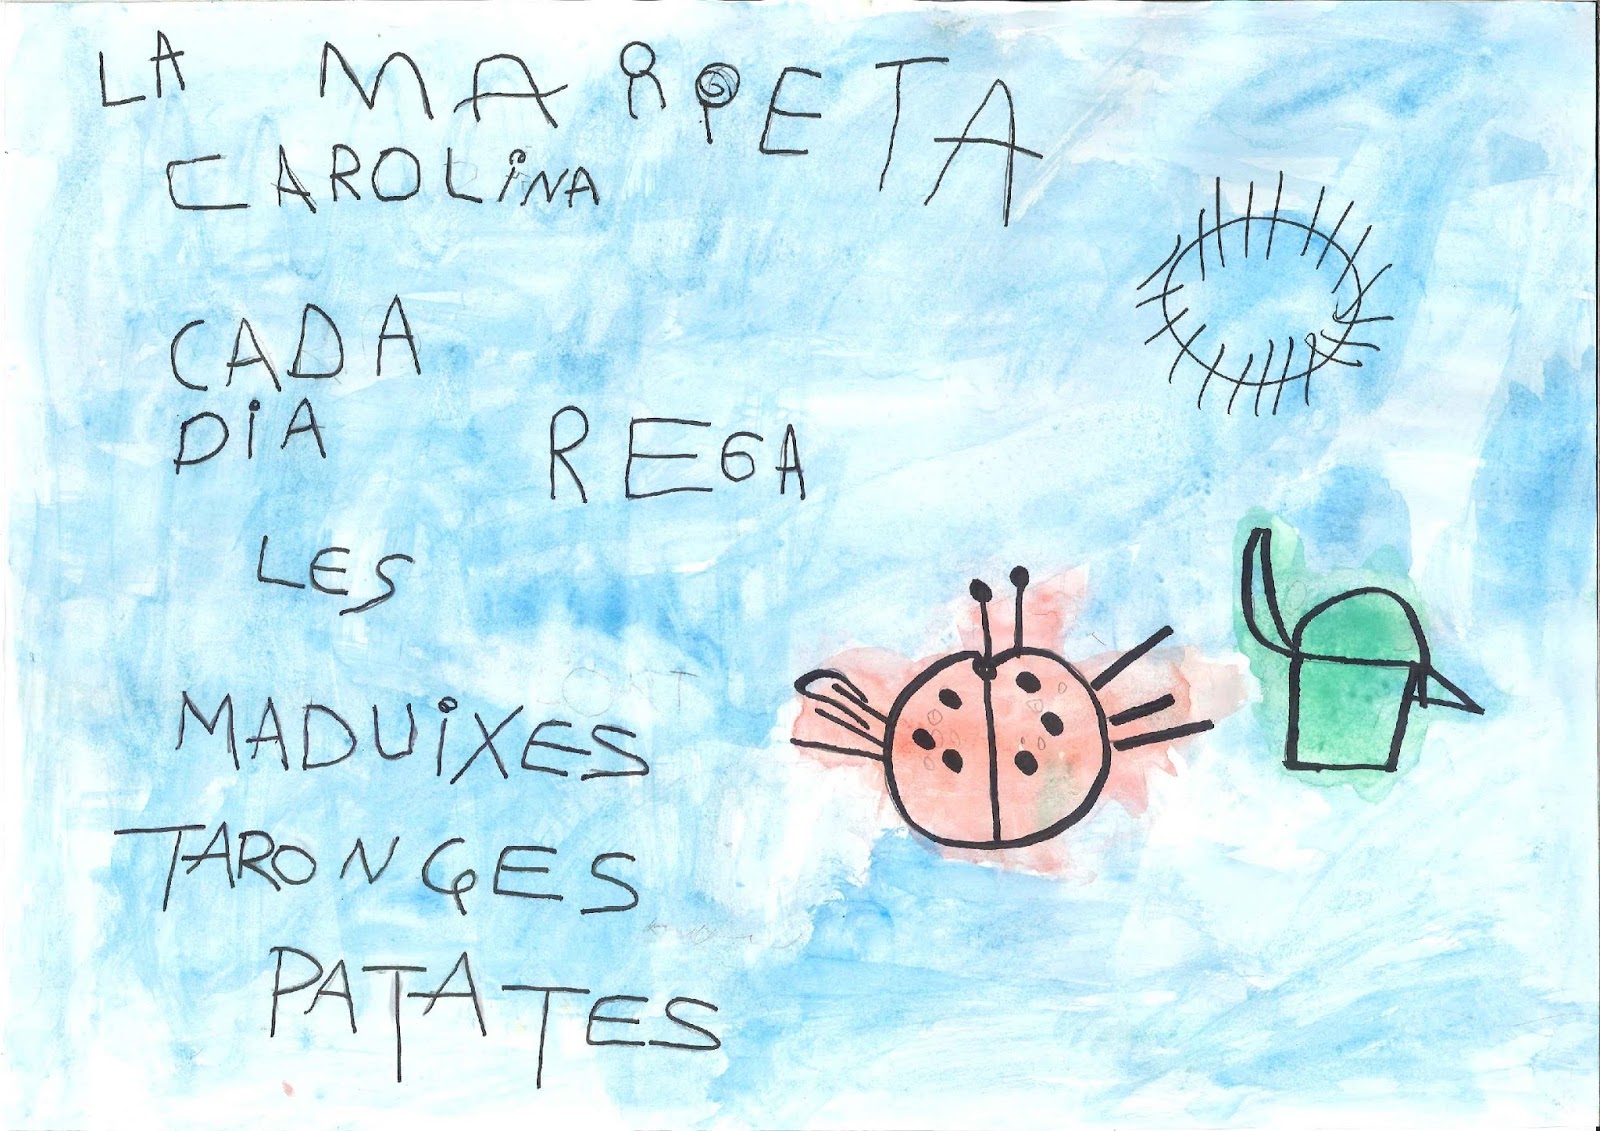 LA MARPETA
CAROLiNA
CADA
DiA REGA
LES
MADUiXES
TARONGES
PATATES